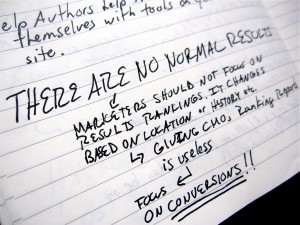 elp Authors help
themselves with tools on yo
site.
THERE ARE NO NORMAL RESULTS
MARKETERS SHOULD NOT FOCUS ON
RESULTS RANKINGS. IT CHANGES
BASED ON LOCATION or HISTORY etc.
↳ GIVING CMO, Ranking Reports
is useless
FOCUS ↵
ON CONVERSIONS!!